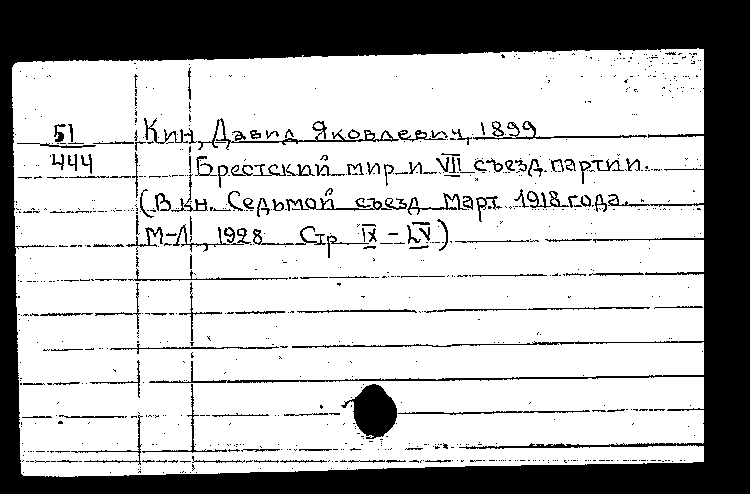 51 Кин, Давид Яковлевич, 1899
444 Брестский мир и VII съезд партии.
(В кн. Седьмой съезд Март 1918 года.
М-Л, 1928 Стр IX - LV)